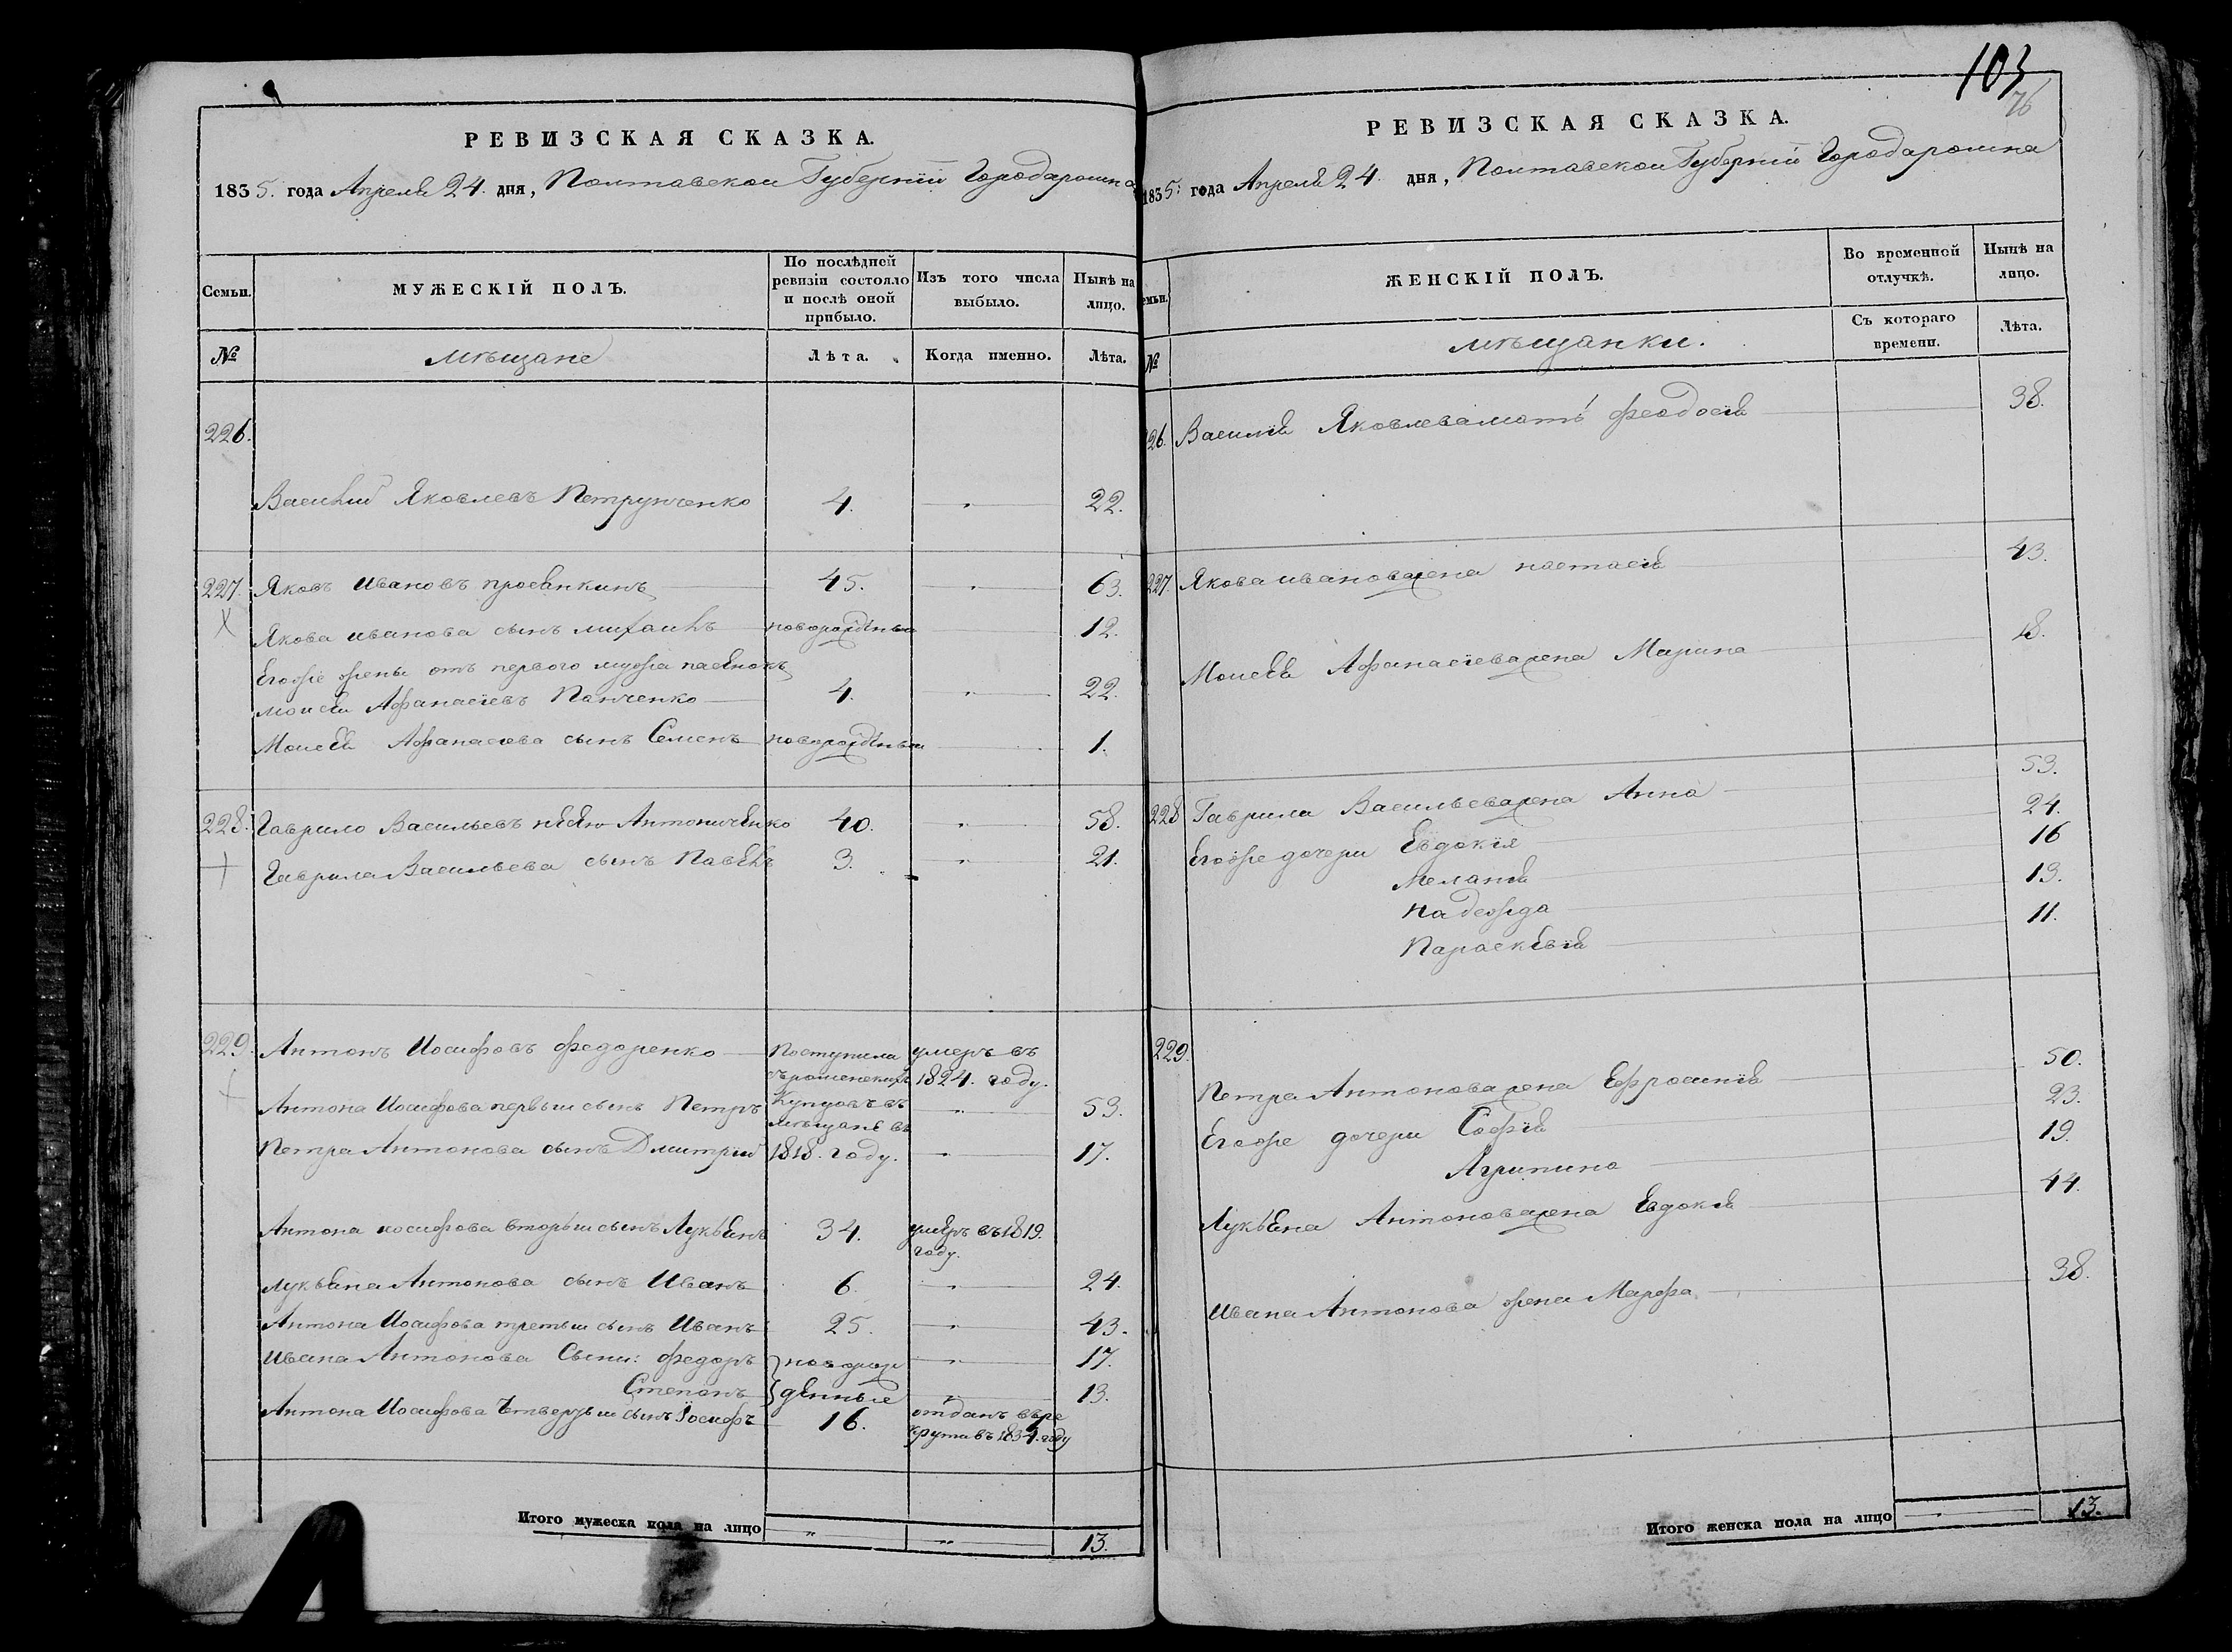 РЕВИЗСКАЯ СКАЗКА.
1835. года Апреля 24. дня, Полтавской Губернїи Города ромна
Семьи.
МУЖЕСКІЙ ПОЛЪ.
По послѣдней ревизіи состояло и послѣ оной прибыло.
Изъ того числа выбыло.
Нынѣ на лицо.
№
мѣщане
Лѣта.
Когда именно.
Лѣта.
226.
Василий Яковлевъ Петрунченко 4. 22.
227. Яковъ Ивановъ 45. 63.
Якова иванова сынъ михаилъ новорожденный 12.
Егоже жены отъ первого мужа пасынокъ
моисей Афанасїевъ Панченко 4. 22.
Моисея Афанасїева сынъ Семенъ новорожденный 1.
228. Гаврило Васильевъ Антонченко 40. 58.
Гаврила Васильева сынъ Павелъ 3. 21.
229. Антонъ Иосифовъ федоренко Поступили умеръ въ
1824. году.
Антона Иосифова первый сынъ Петръ Купцовъ въ 53.
мѣщане въ
Петра Антонова сынъ Дмитрий 1818. году. 17.
Антона иосифова вторый сынъ Лукьянъ 34. умеръ въ 1819.
году.
Лукьяна Антонова сынъ Иванъ 6. 24.
Антона Иосифова третий сынъ Иванъ 25. 43.
Ивана Антонова Сыни: федоръ новорож 17.
Степанъ денные 13.
Антона Иосифова Четвертый сынъ Іосифъ 16. отданъ въ ре
крута въ 1834. году
Итого мужеска пола на лицо 13.
103
76
РЕВИЗСКАЯ СКАЗКА.
1835: года Апреля 24. дня, Полтавской Губернїи Города ромна
емьи.
ЖЕНСКІЙ ПОЛЪ.
Во временной отлучкѣ.
Нынѣ на лицо.
№
мѣщанки.
Съ котораго времени.
Лѣта.
226. Василия Яковлева мать феодосия 38.
227. Якова иванова жена настасия 43.
Моисея Афанасїева жена Марина 18.
228 Гаврила Васильева жена Анна 53.
Егоже дочери Евдокїя 24.
Мелания 16
Надежда 13.
Параскевїя 11.
229.
Петра Антонова жена Ефросинїя 50.
Егоже дочери Софїя 23.
Агрипина 19.
Лукьяна Антонова жена Евдокия 44.
Ивана Антонова жена Марфа 38.
Итого женска пола на лицо 13.